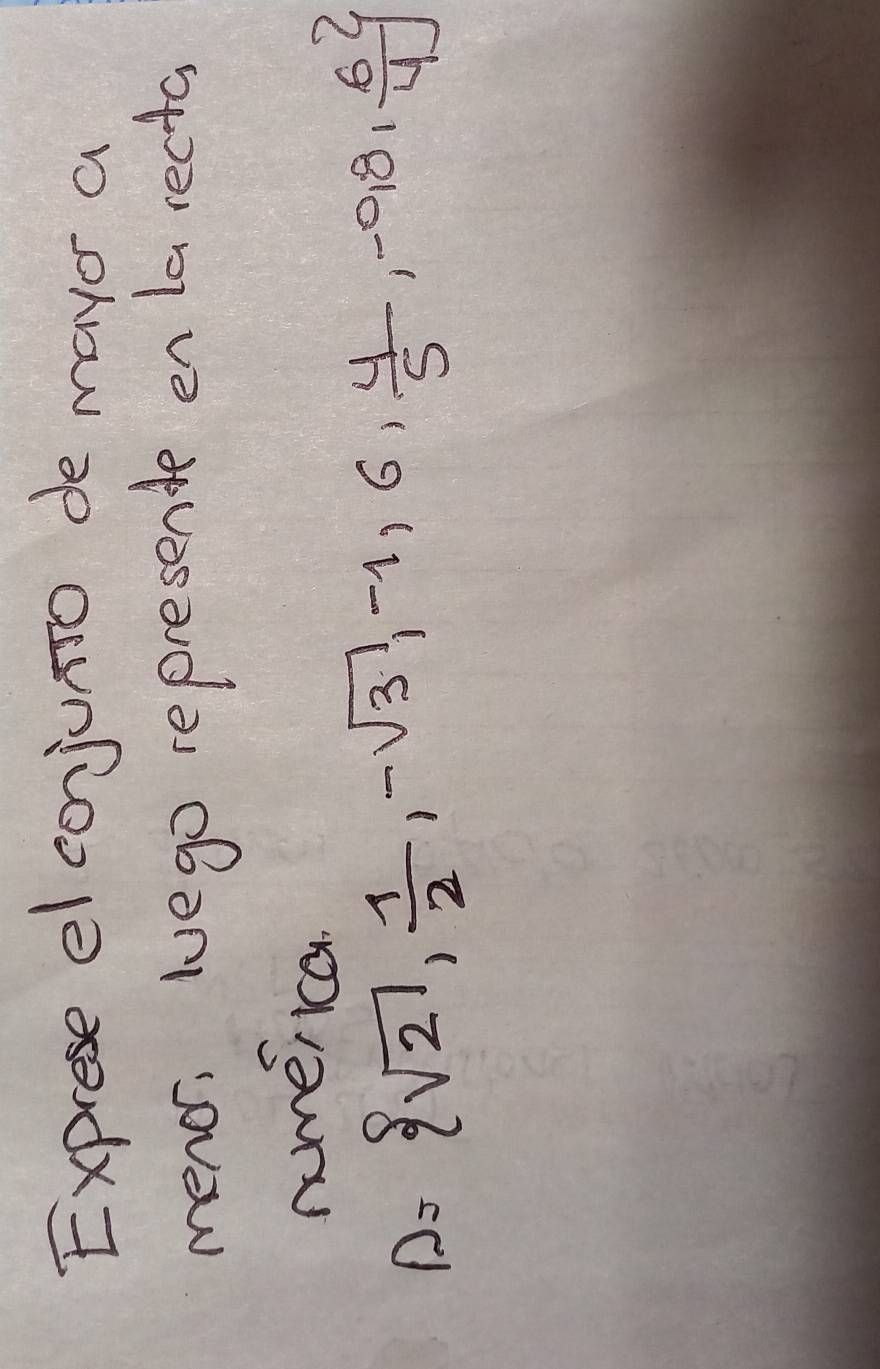 Exprese el conjunto de mayor a
menor, luego represente en la recta
numérica.
D= {√2, 1/2, -√3, -1, 6, 4/5, -0,8, 6/4}